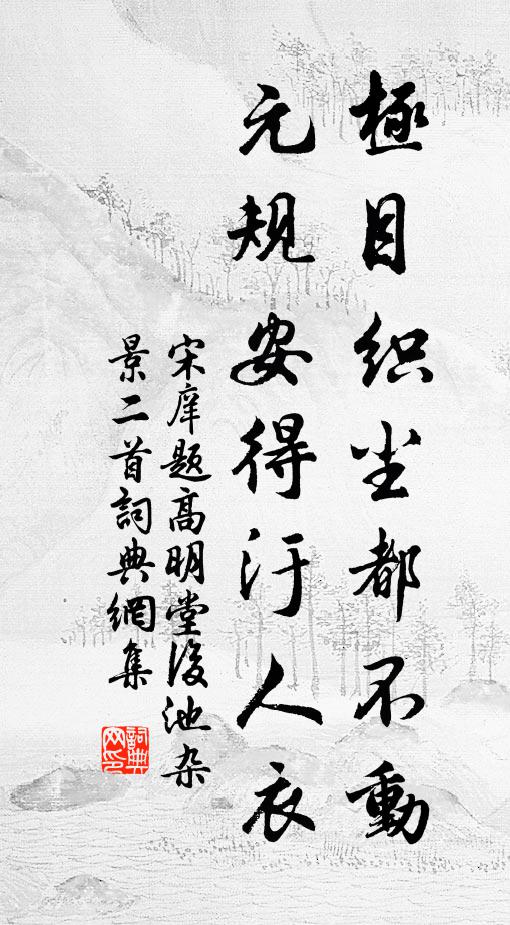 極目织尘都不動
元規安得汙人衣
宋庠题高明堂後池杂
景二首詞典網集
詞典
网印